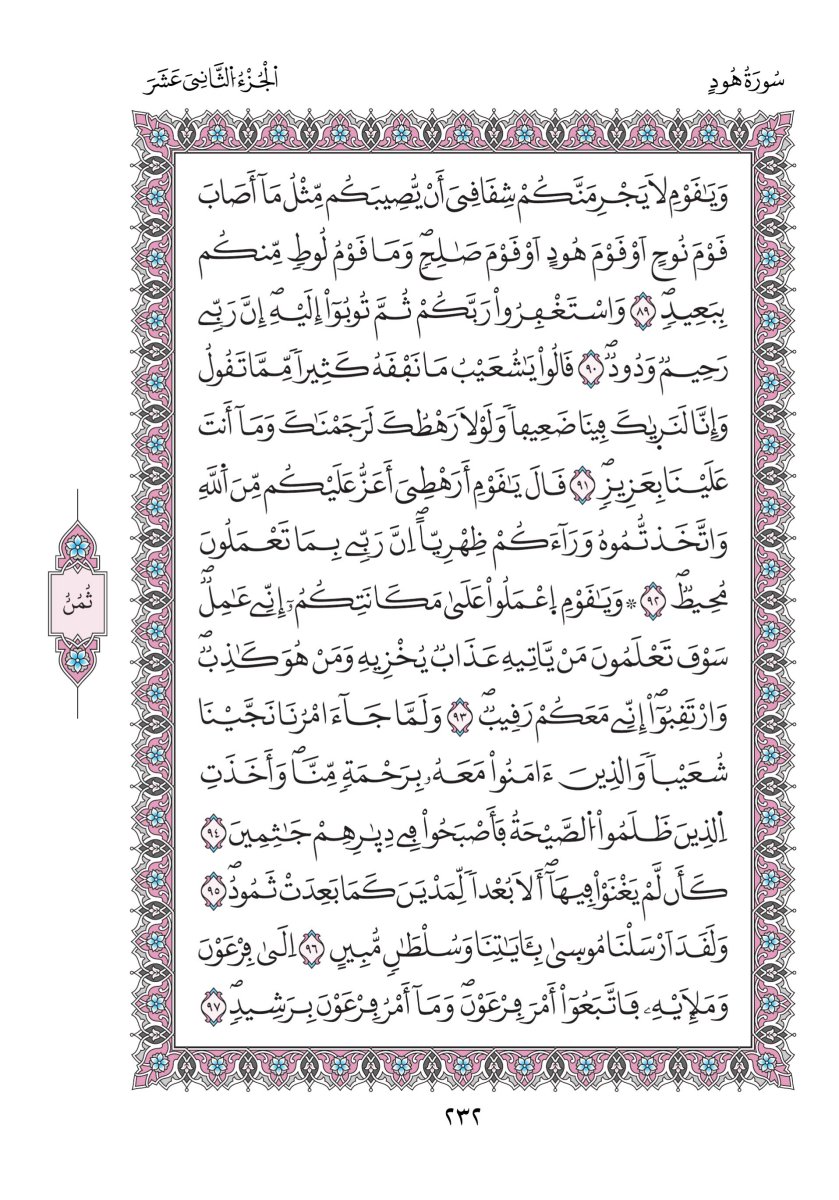 سُورَةُ هُودٍ
اَ۬لْجُزْءُ اُ۬لثَّانِيَ عَشَرَ
وَيَٰقَوْمِ لَا يَجْرِمَنَّكُمْ شِقَاقِيَ أَنْ يُّصِيبَكُم مِّثْلُ مَآ أَصَابَ
قَوْمَ نُوحٍ اَوْ قَوْمَ هُودٍ اَوْ قَوْمَ صَٰلِحٖۖ وَمَا قَوْمُ لُوطٖ مِّنكُم
بِبَعِيدٖۖ ٨٩ وَاسْتَغْفِرُواْ رَبَّكُمْ ثُمَّ تُوبُوٓاْ إِلَيْهِۖ إِنَّ رَبِّے
رَحِيمٞ وَدُودٞۖ ٩٠ قَالُواْ يَٰشُعَيْبُ مَا نَفْقَهُ كَثِيراٗ مِّمَّا تَقُولُ
وَإِنَّا لَنَر۪يٰكَ فِينَا ضَعِيفاٗ وَلَوْلَا رَهْطُكَ لَرَجَمْنَٰكَ وَمَآ أَنتَ
عَلَيْنَا بِعَزِيزٖۖ ٩١ قَالَ يَٰقَوْمِ أَرَهْطِيَ أَعَزُّ عَلَيْكُم مِّنَ اَ۬للَّهِ
وَاتَّخَذتُّمُوهُ وَرَآءَكُمْ ظِهْرِيّاًۖ اِنَّ رَبِّے بِمَا تَعْمَلُونَ
مُحِيطٞۖ ٩٢ ۞ وَيَٰقَوْمِ اِ۪عْمَلُواْ عَلَىٰ مَكَانَتِكُمُۥٓ إِنِّے عَٰمِلٞۖ
سَوْفَ تَعْلَمُونَ مَنْ يَّاتِيهِ عَذَابٞ يُخْزِيهِ وَمَنْ هُوَ كَٰذِبٞۖ
وَارْتَقِبُوٓاْ إِنِّے مَعَكُمْ رَقِيبٞۖ ٩٣ وَلَمَّا جَآءَ امْرُنَا نَجَّيْنَا
شُعَيْباٗ وَالذِينَ ءَامَنُواْ مَعَهُۥ بِرَحْمَةٖ مِّنَّاۖ وَأَخَذَتِ
اِ۬لذِينَ ظَلَمُواْ اُ۬لصَّيْحَةُ فَأَصْبَحُواْ فِے دِيٰ۪رِهِمْ جَٰثِمِينَ ٩٤
كَأَن لَّمْ يَغْنَوْاْ فِيهَآۖ أَلَا بُعْداٗ لِّمَدْيَنَ كَمَا بَعِدَتْ ثَمُودُۖ ٩٥
وَلَقَدَ اَرْسَلْنَا مُوس۪يٰ بِـَٔايَٰتِنَا وَسُلْطَٰنٖ مُّبِينٍ ٩٦ اِلَىٰ فِرْعَوْنَ
وَمَلَإِيْهِۦ فَاتَّبَعُوٓاْ أَمْرَ فِرْعَوْنَۖ وَمَآ أَمْرُ فِرْعَوْنَ بِرَشِيدٖۖ ٩٧
ثُمُنُ
٢٣٢